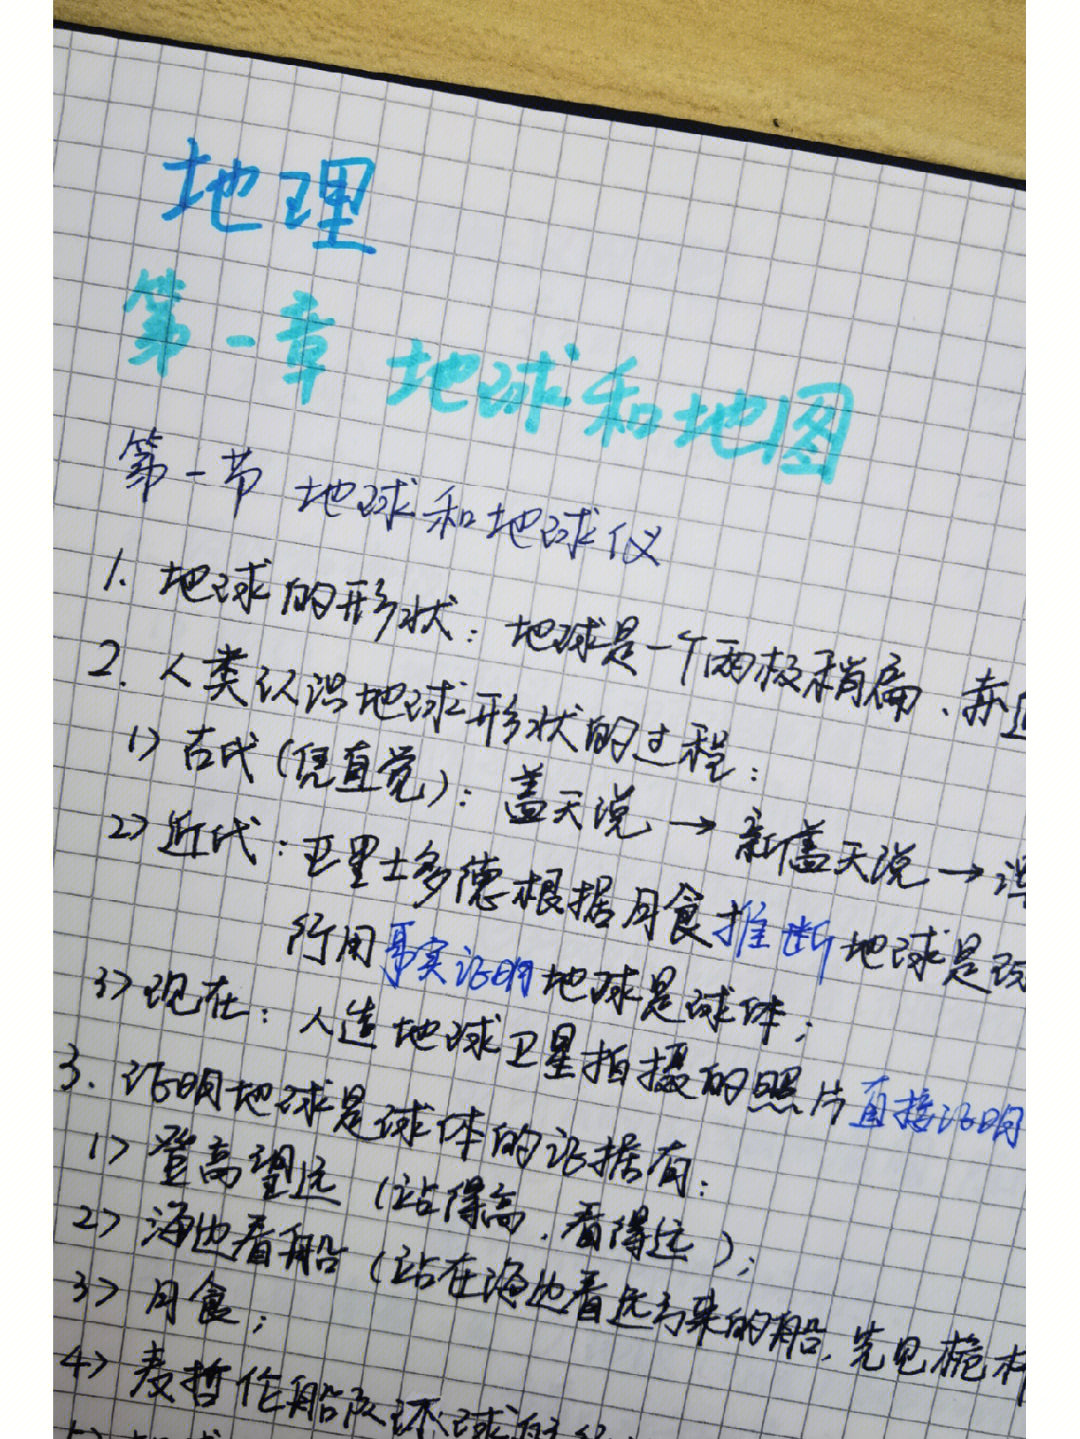 地理
第一章 地球和地图
第一节 地球和地球仪
1. 地球的形状：地球是一个两极稍扁、赤
2. 人类认识地球形状的过程：
1> 古代（凭直觉）：盖天说 → 新盖天说 →
2> 近代：亚里士多德根据月食推断地球是球
行用事实证明地球是球体；
3> 现在：人造地球卫星拍摄的照片直接证明
3. 证明地球是球体的证据有：
1> 登高望远（站得高，看得远）；
2> 海边看船（站在海边看远方来的船，先见桅杆
3> 月食；
4> 麦哲伦船队环球